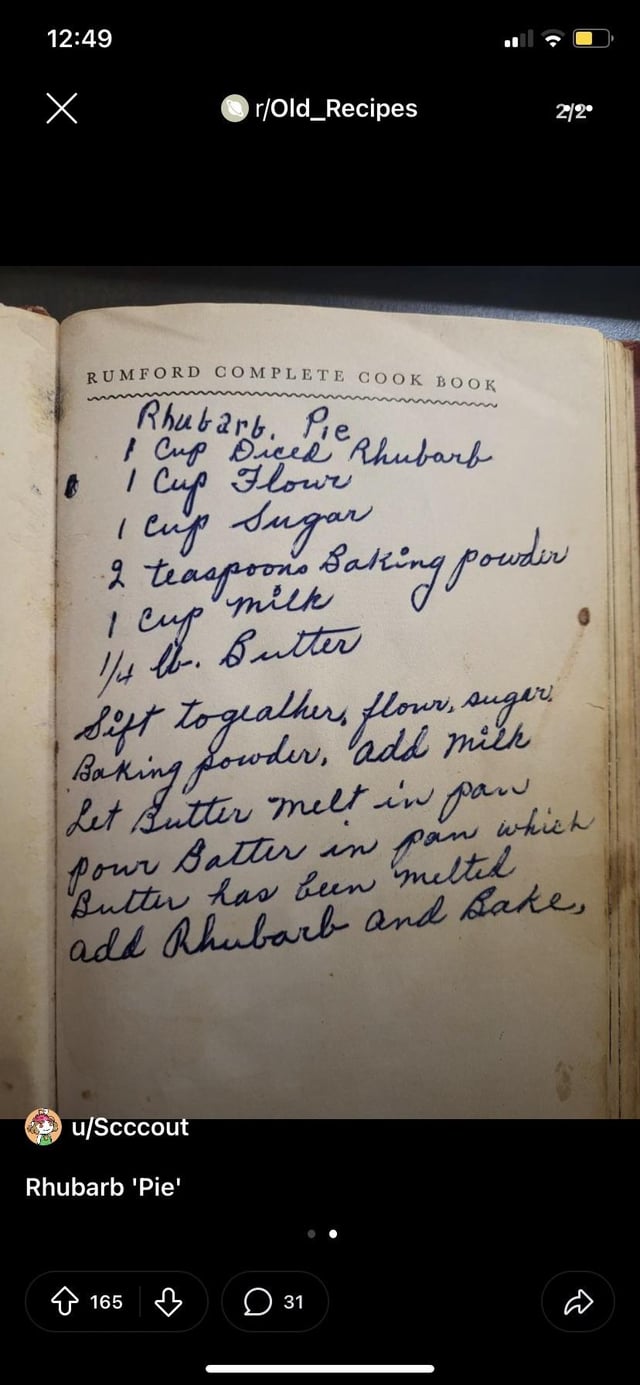 12:49
r/Old_Recipes
2/2
RUMFORD COMPLETE COOK BOOK
Rhubarb. Pie
1 Cup Diced Rhubarb
1 Cup Flour
1 Cup Sugar
2 teaspoons Baking powder
1 Cup milk
1/4 lb. Butter
Sift togealther, flour, sugar.
Baking powder, add milk
Let Butter melt in pan
pour Batter in pan which
Butter has been melted
add Rhubarb and Bake,
u/Scccout
Rhubarb 'Pie'
165
31